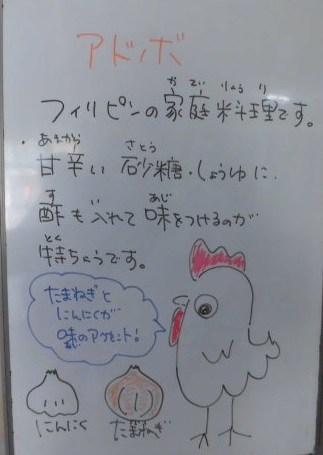 アドボ
フィリピンの家庭料理です。
かていりょうり
あまから
甘辛い 砂糖・しょうゆに
さとう
酢も入れて 味をつけるのが
す あじ
特ちょうです。
とく
たまねぎと
にんにくが
味のアクセント!
にんにく たまねぎ